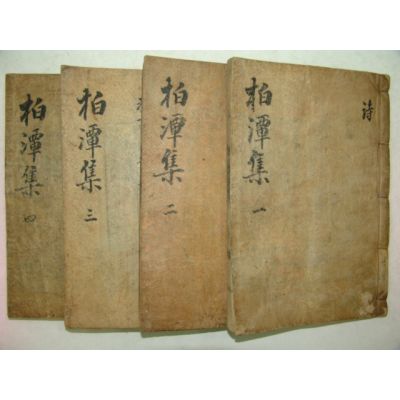 柏潭集 一
詩
柏潭集 二
柏潭集 三
柏潭集 四